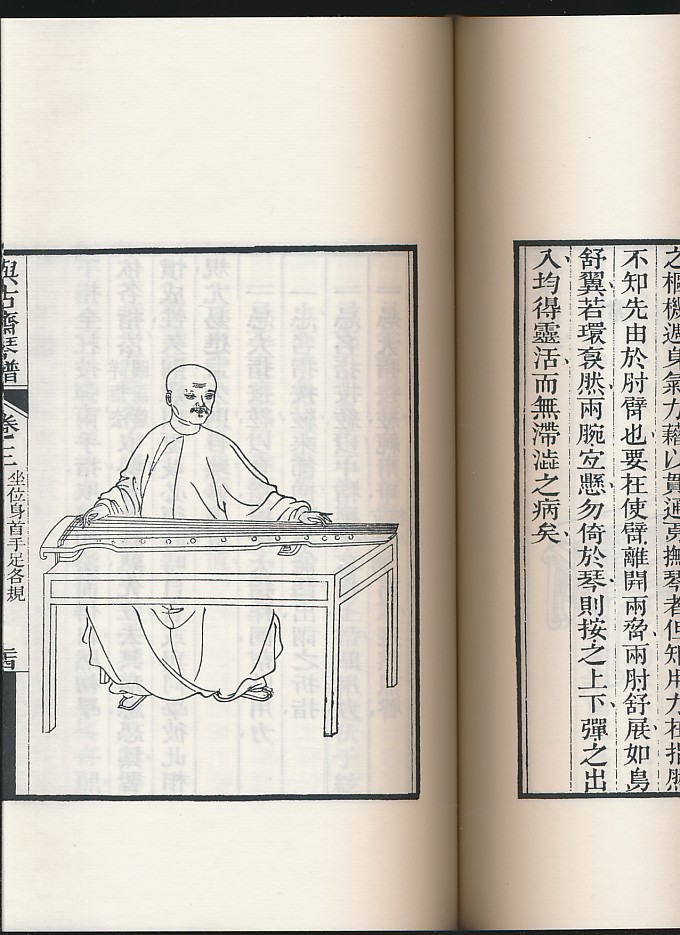 之樞機週身氣力藉以貫通莫撫琴者但知用力在指然
不知先由於肘臂也要在使臂離開兩脅兩肘舒展如鳥
舒翼若環裒然兩腕宜懸勿倚於琴則按之上下彈之出
入均得靈活而無滯澁之病矣
與古齋琴譜
卷三
坐位身首手足各規